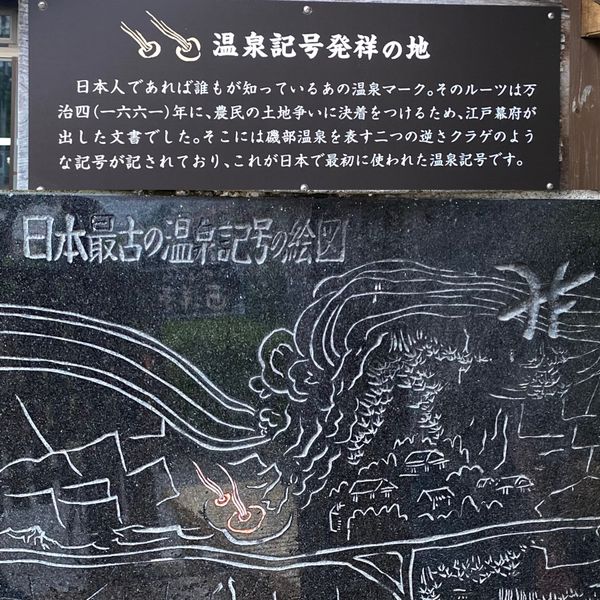 温泉記号発祥の地
日本人であれば誰もが知っているあの温泉マーク。そのルーツは万
治四(一六六一)年に、農民の土地争いに決着をつけるため、江戸幕府が
出した文書でした。そこには磯部温泉を表す二つの逆さクラゲのよう
な記号が記されており、これが日本で最初に使われた温泉記号です。
日本最古の温泉記号の絵図
北